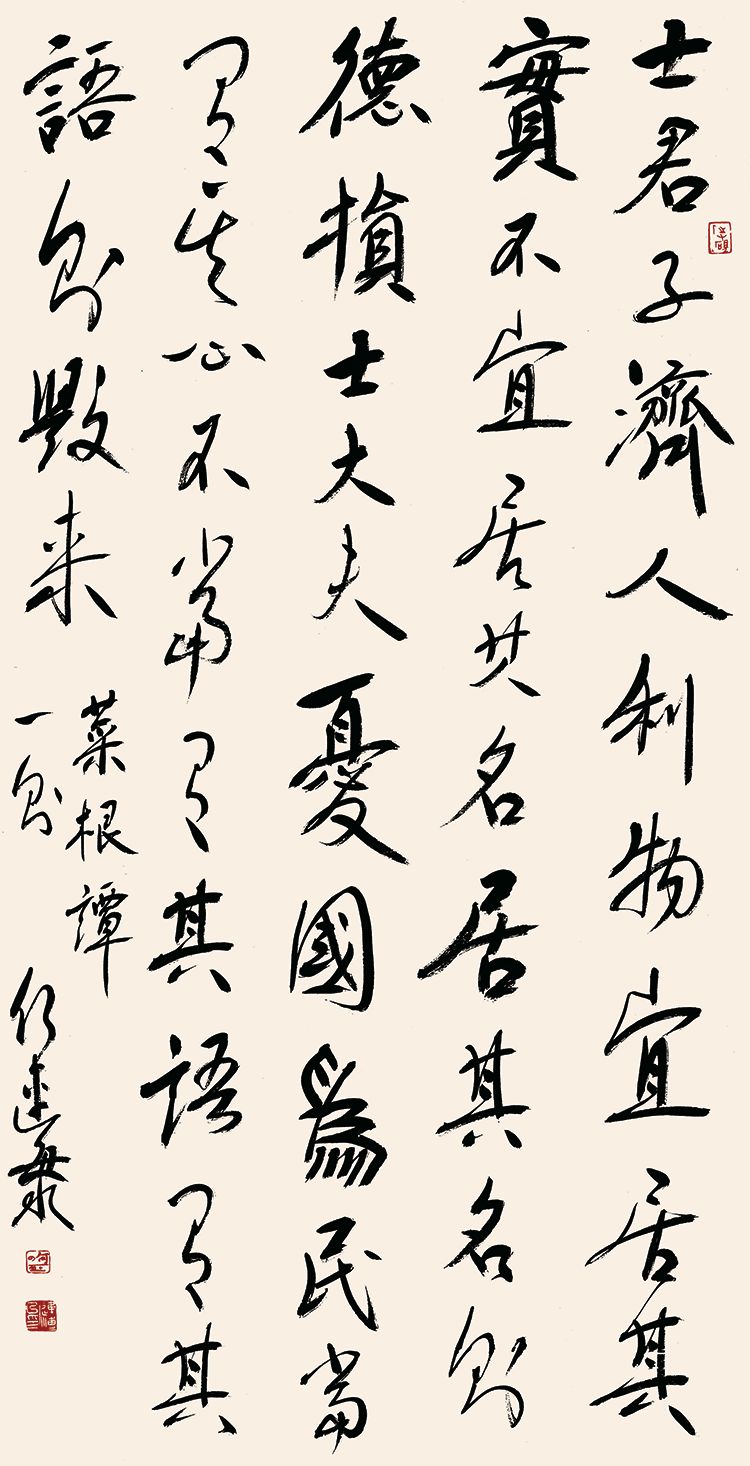 士君子濟人利物宜居其
實不宜居其名居其名則
德損士大夫憂國爲民當
有其心不當有其語有其
語則毀来
菜根譚
一則